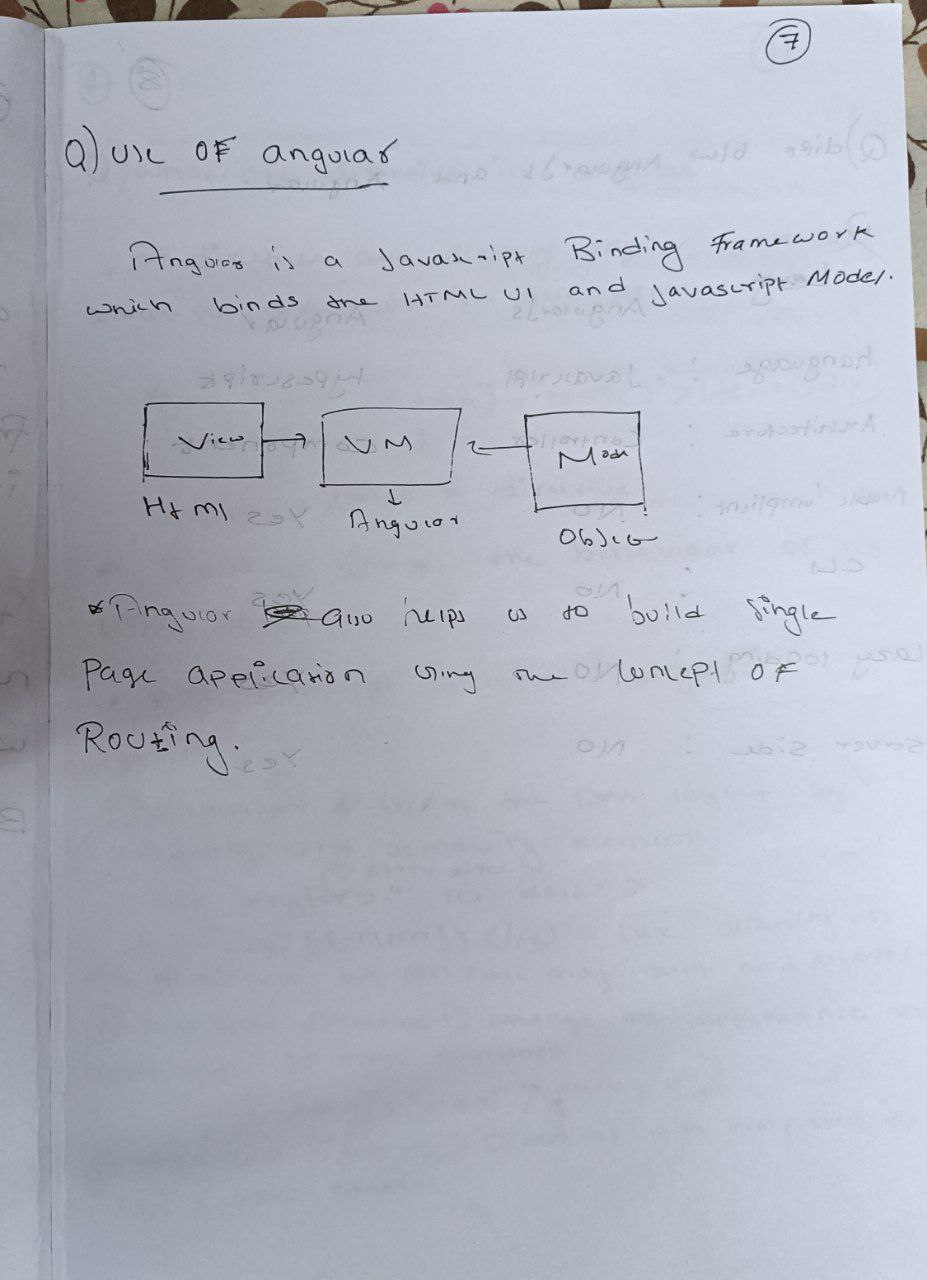 7
Q) Use OF angular
Angular is a Javascript Binding Framework
which binds the HTML UI and Javascript Model.
View VM Model
Html Angular Object
* Angular also helps us to build Single
Page application Using the Concept OF
Routing.